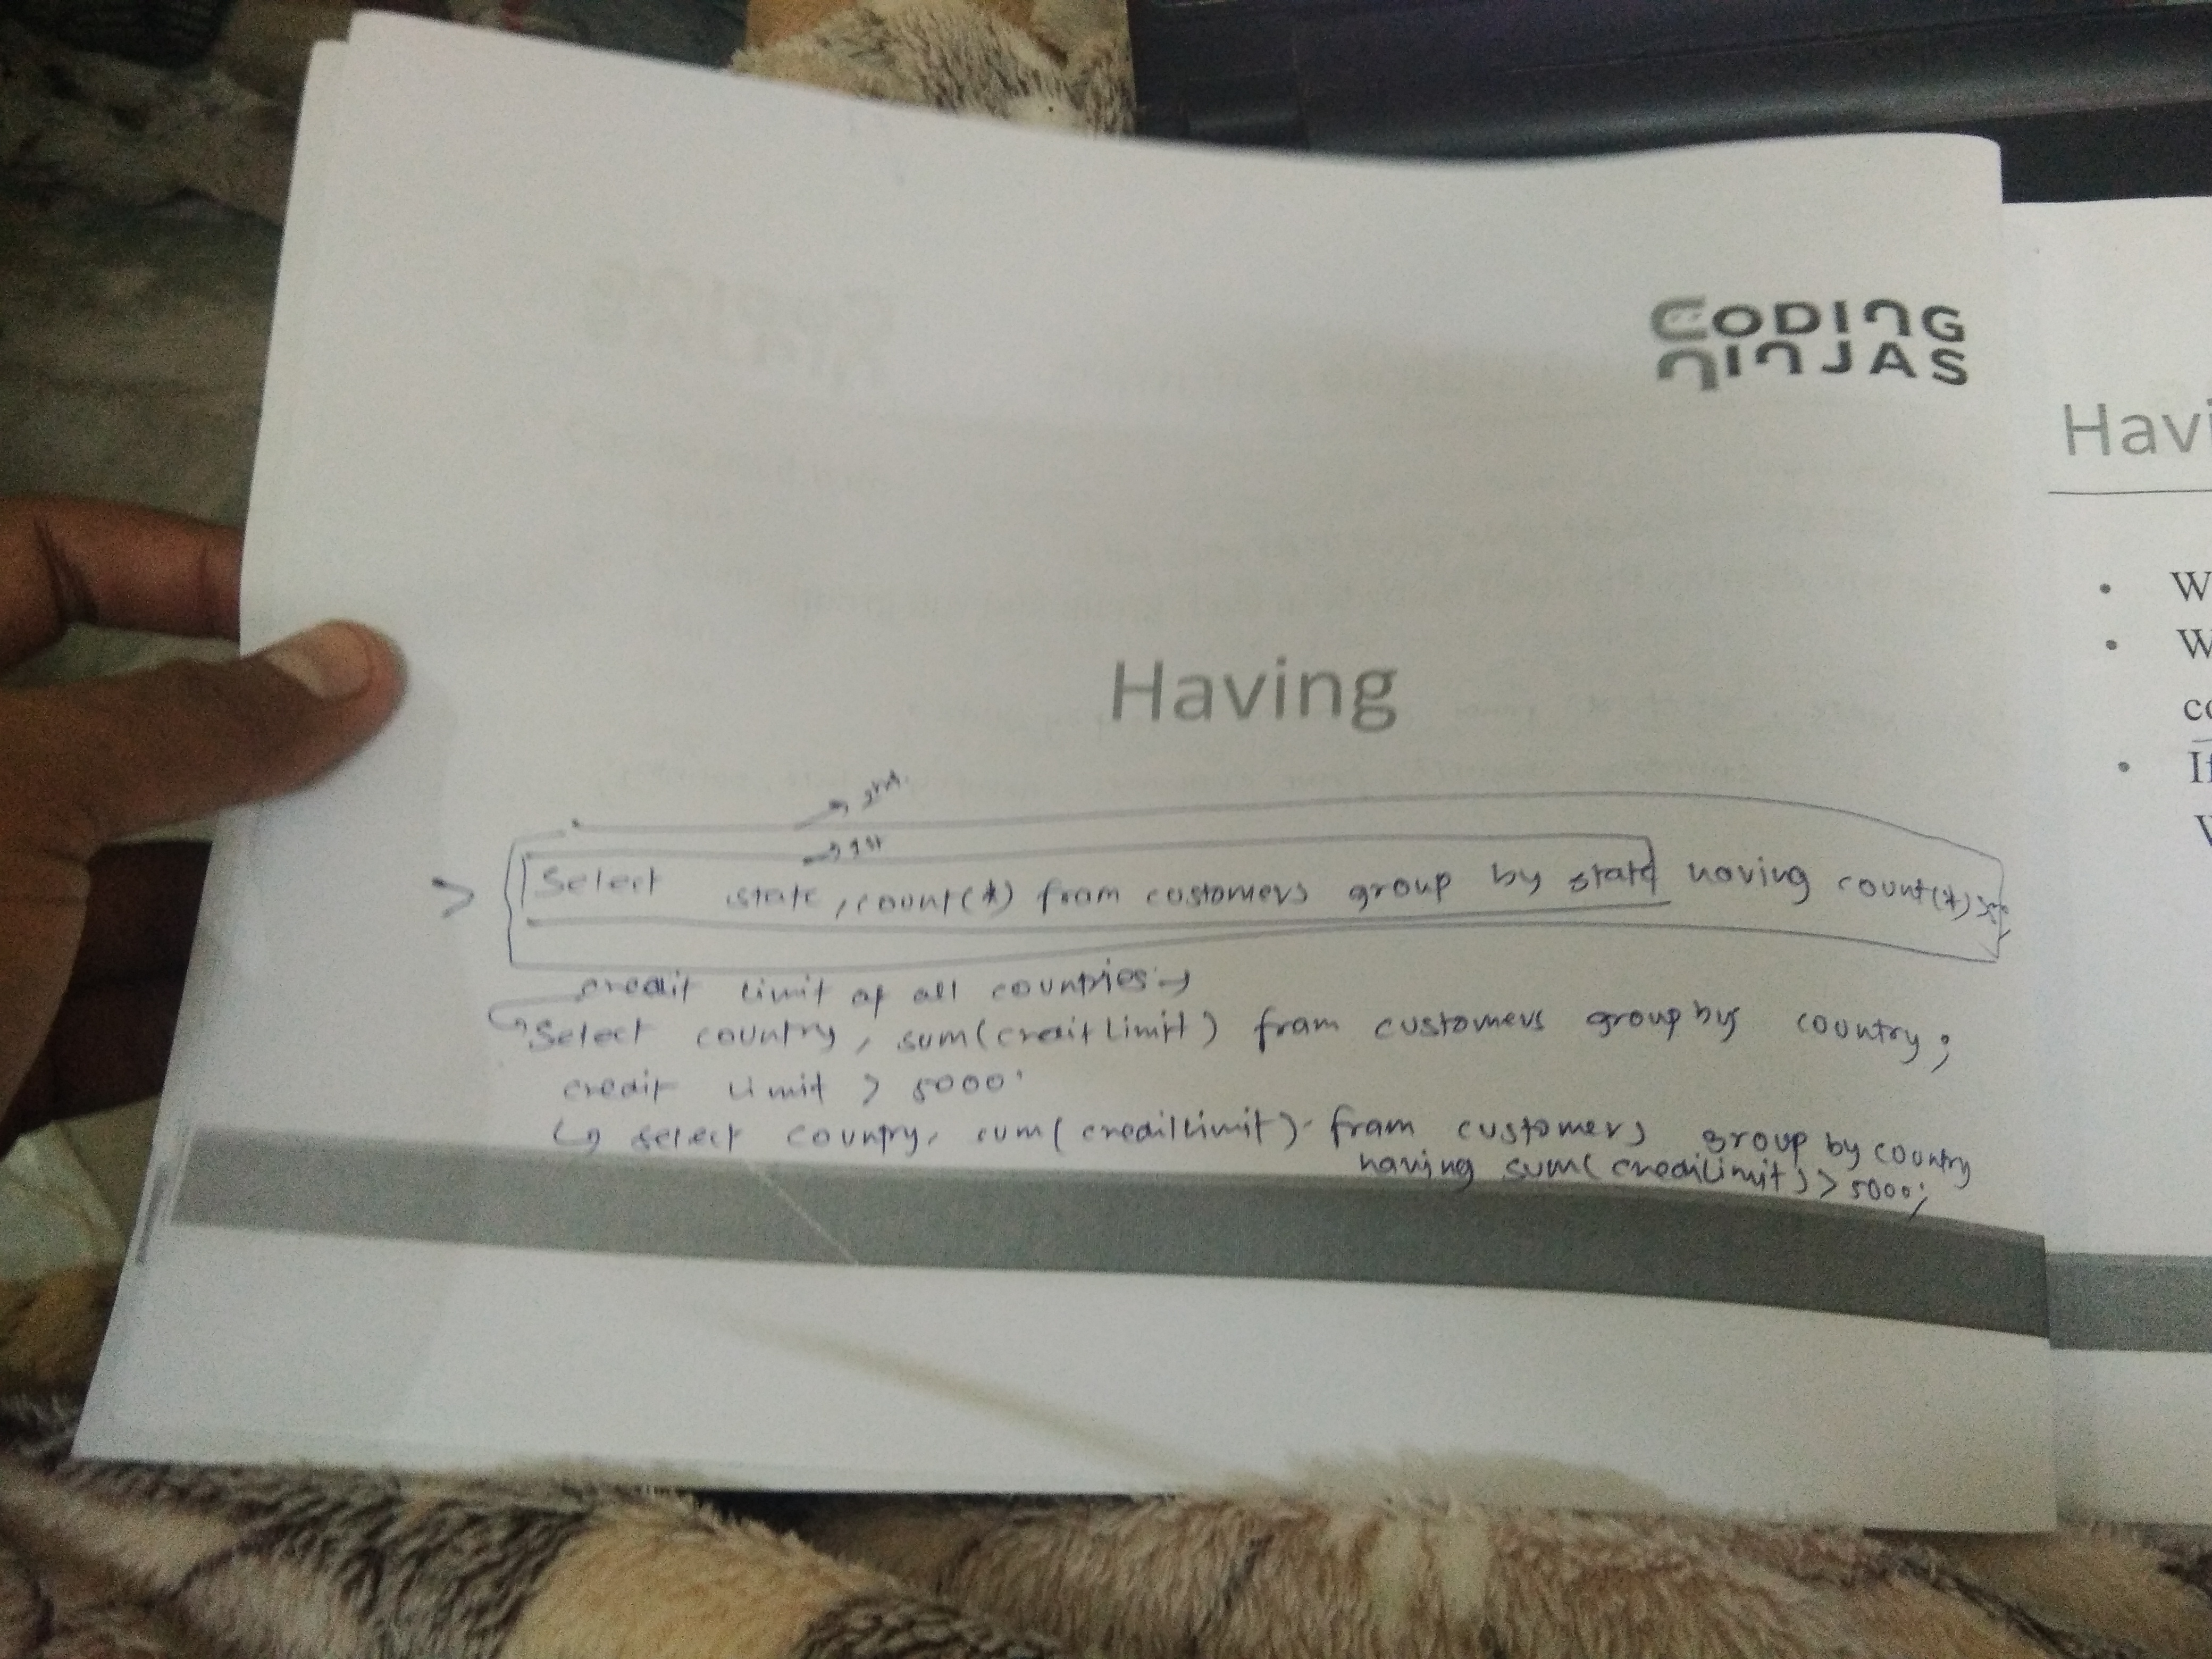 CODING
NINJAS
Having
Select state, count(*) from customers group by state having count(*)
→ 1st
credit limit of all countries →
Select country, sum(creditLimit) from customers group by country;
credit limit > 5000
↳ select country, sum(creditLimit) from customers group by country
having sum(creditLimit) > 5000;
Havi
• W
• W
co
• If